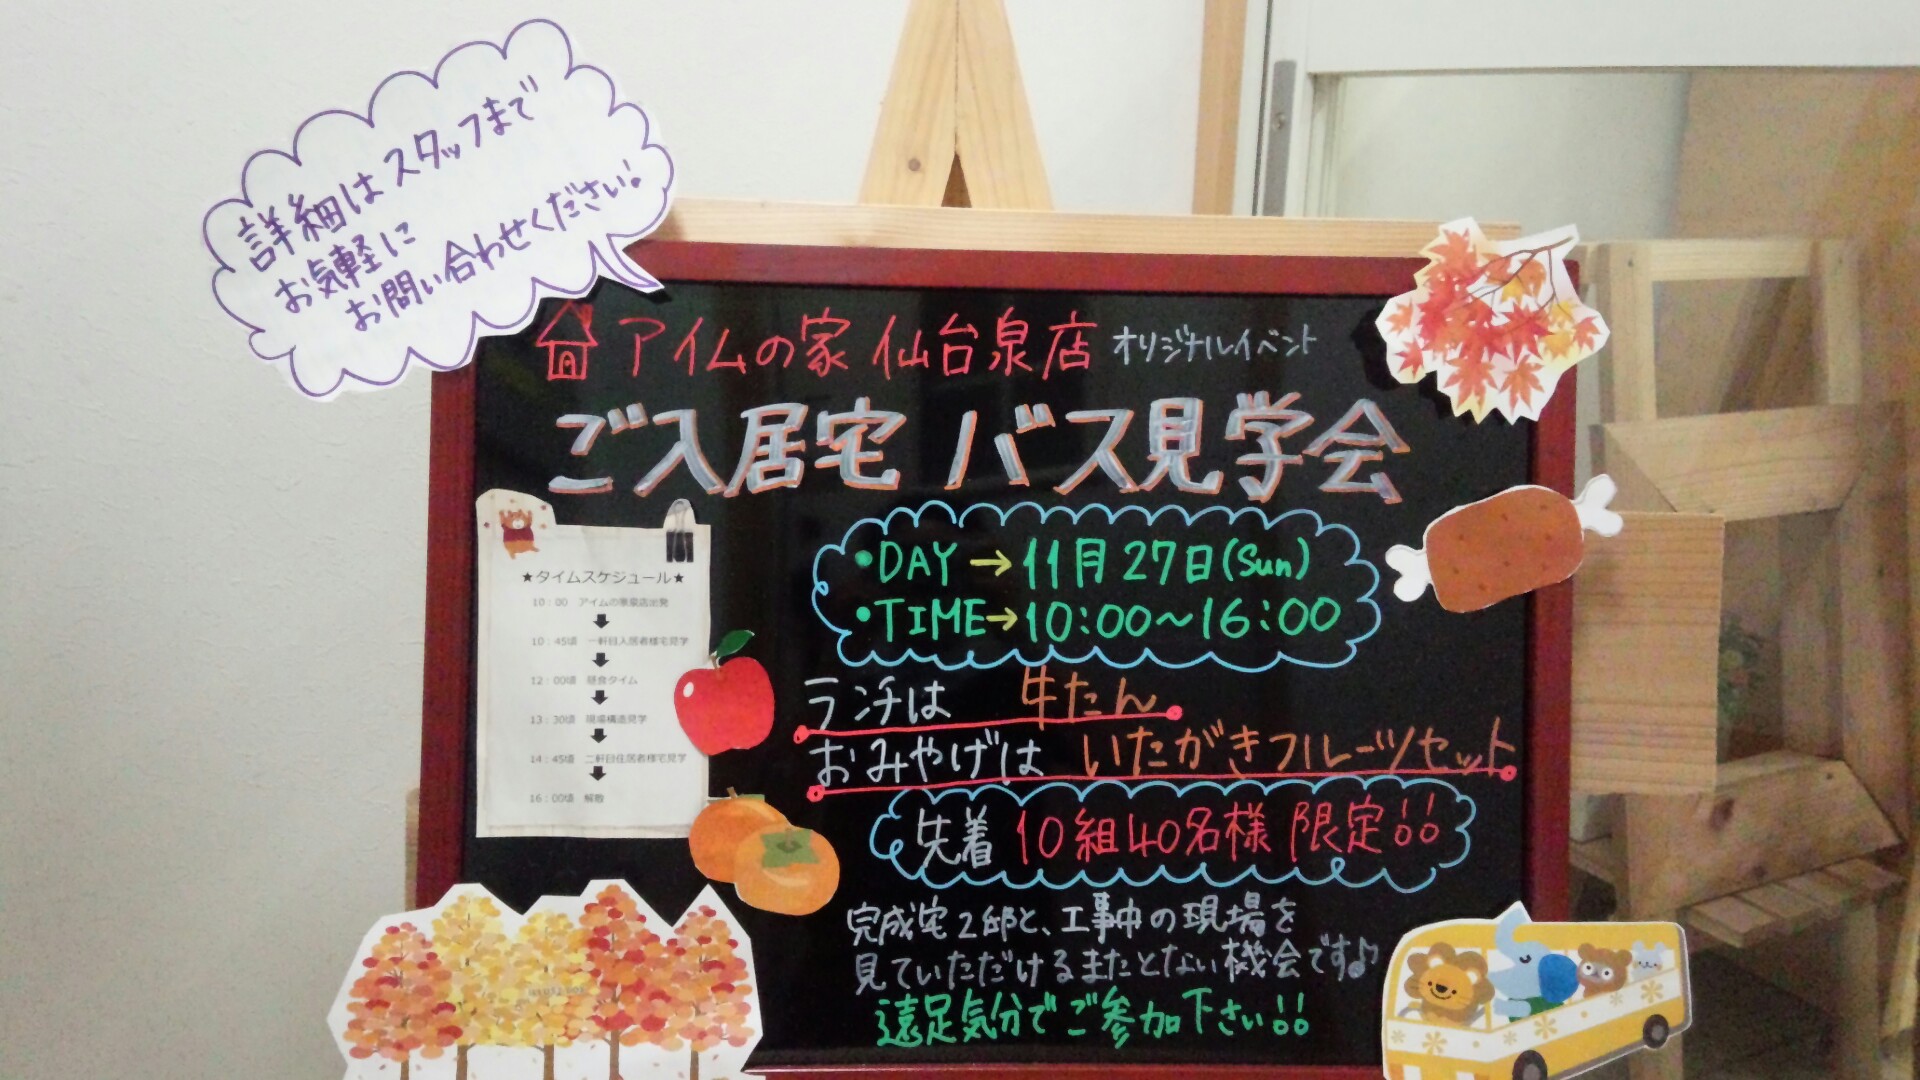 詳細はスタッフまで
お気軽に
お問い合わせください!
アイムの家 仙台泉店 オリジナルイベント
ご入居宅 バス見学会
★タイムスケジュール★
10:00 アイムの家泉店出発
10:45頃 一軒目入居者様宅見学
12:00頃 昼食タイム
13:30頃 現場構造見学
14:45頃 二軒目住居者様宅見学
16:00頃 解散
•DAY→11月27日(Sun)
•TIME→10:00~16:00
ランチは 牛たん
おみやげは いたがきフルーツセット
先着 10組40名様 限定!!
完成宅2邸と、工事中の現場を
見ていただけるまたとない機会です♪
遠足気分でご参加下さい!!